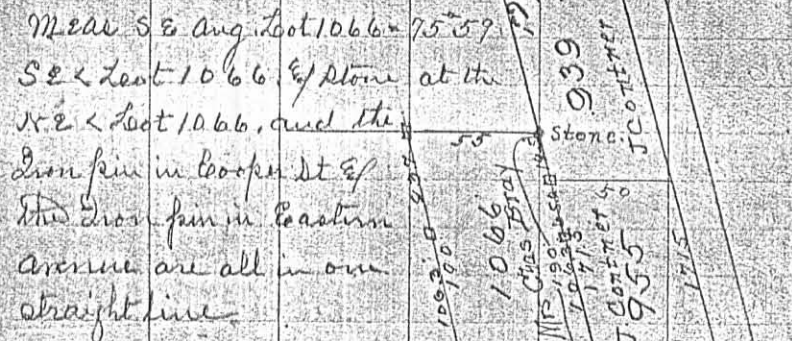 Meas S E ang. Loot 1066 = 75°59'
S E < Loot 1066, & Stone at the
N. E < Loot 1066, and the
Iron pin in Cooper St &
the Iron pin in Eastern
avenue are all in one
straight line
55
Stone.
939
J Conner
1066
Chas Bray
190
J Conner
955
50
1715
1715
190